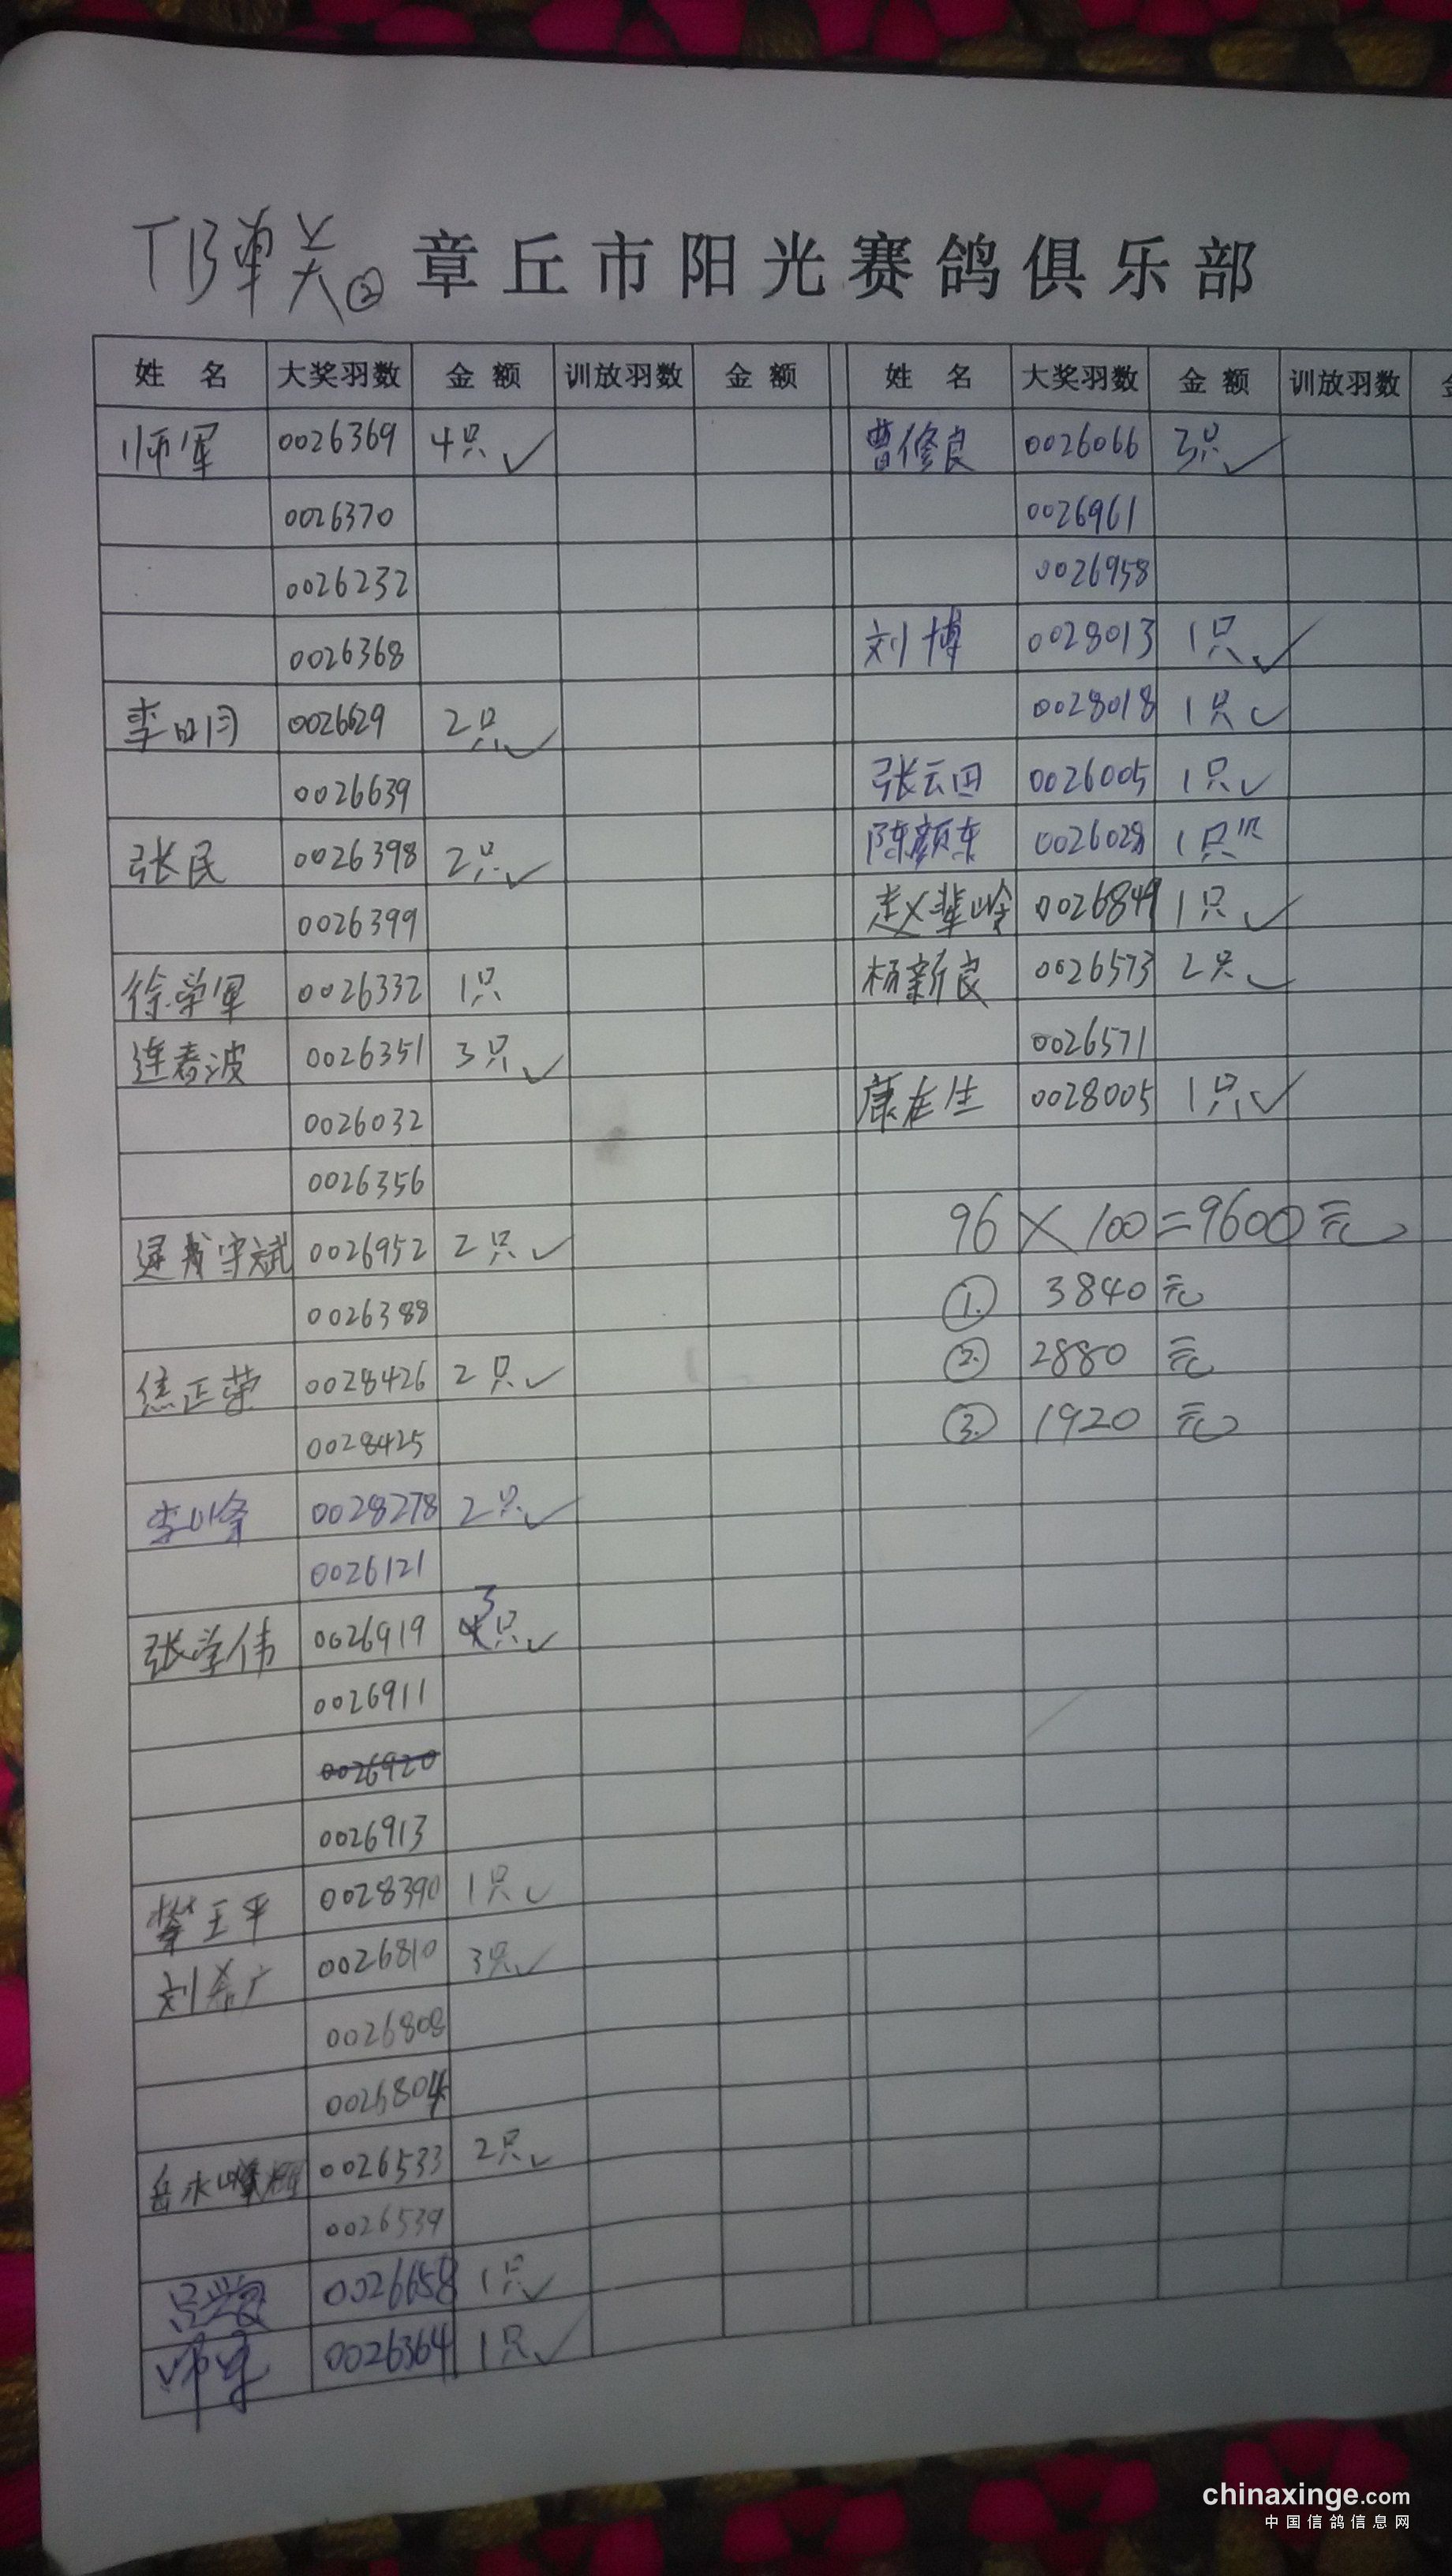 TB单关②
章丘市阳光赛鸽俱乐部
姓 名 大奖羽数 金 额 训放羽数 金 额
师军 0026369 4只✓
0026370
0026232
0026368
李明 0026629 2只✓
0026639
张民 0026398 2只✓
0026399
徐学军 0026332 1只
连春波 0026351 3只✓
0026032
0026356
守斌 0026952 2只✓
0026388
焦正荣 0028426 2只✓
0028425
李峰 0028278 2只✓
0026121
张学伟 0026919 3只✓
0026911
0026920
0026913
攀王平 0028390 1只✓
刘希广 0026810 3只✓
0026808
0026804
岳永 0026533 2只✓
0026539
0026658 1只✓
师军 0026364 1只✓
姓 名 大奖羽数 金 额 训放羽数 金
曹修良 0026066 3只✓
0026961
0026958
刘博 0028013 1只✓
0028018 1只✓
张云田 0026005 1只✓
陈颜东 0026028 1只
赵辈岭 0026849 1只✓
杨新良 0026573 2只✓
0026571
康在生 0028005 1只✓
96×100=9600元
①. 3840元
②. 2880元
③. 1920元
chinaxinge.com
中国信鸽信息网